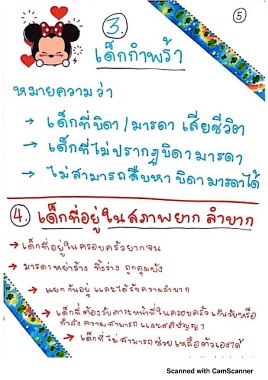 5
3.
เด็กกำพร้า
หมายความว่า
→ เด็กที่บิดา/มารดา เสียชีวิต
→ เด็กที่ไม่ปรากฏบิดามารดา
→ ไม่สามารถสืบหา บิดามารดาได้
4. เด็กที่อยู่ในสภาพยากลำบาก
→ เด็กที่อยู่ในครอบครัวยากจน
→ มารดาหย่าร้าง ทิ้งร่าง ถูกคุมขัง
→ แยกกันอยู่ และได้รับความลำบาก
→ เด็กที่ต้องรับภาระหน้าที่ในครอบครัว เกินวัยหรือ
กำลังความสามารถและสติปัญญา
→ เด็กที่ไม่สามารถช่วยเหลือตัวเองได้
Scanned with CamScanner